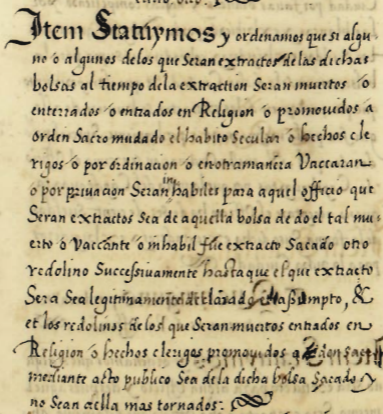 Item Statuymos y ordenamos que si algu-
no ó algunos delos que Seran extractos delas dichas
bolsas al tiempo dela extraction Seran muertos ó
enterrados ó entrados en Religion ó promovidos a
orden Sacro mudado el habito Secular ó hechos cle
rigos ó por ordinacion ó en otra manera Vaccaran
o por privacion Seran inhabiles para aquel officio que
Seran extractos Sea de aquella bolsa de do el tal mu-
erto ó Vaccante ó inhabil fue extracto Sacado otro
redolino Successivamente hasta que el que extracto
Sera Sea legitimamente declarado Assumpto, &
et los redolinos delos que Seran muertos entrados en
Religion ó hechos clerigos promovidos
mediante acto publico Sea dela dicha bolsa Sacado y
no Sean aella mas tornados.